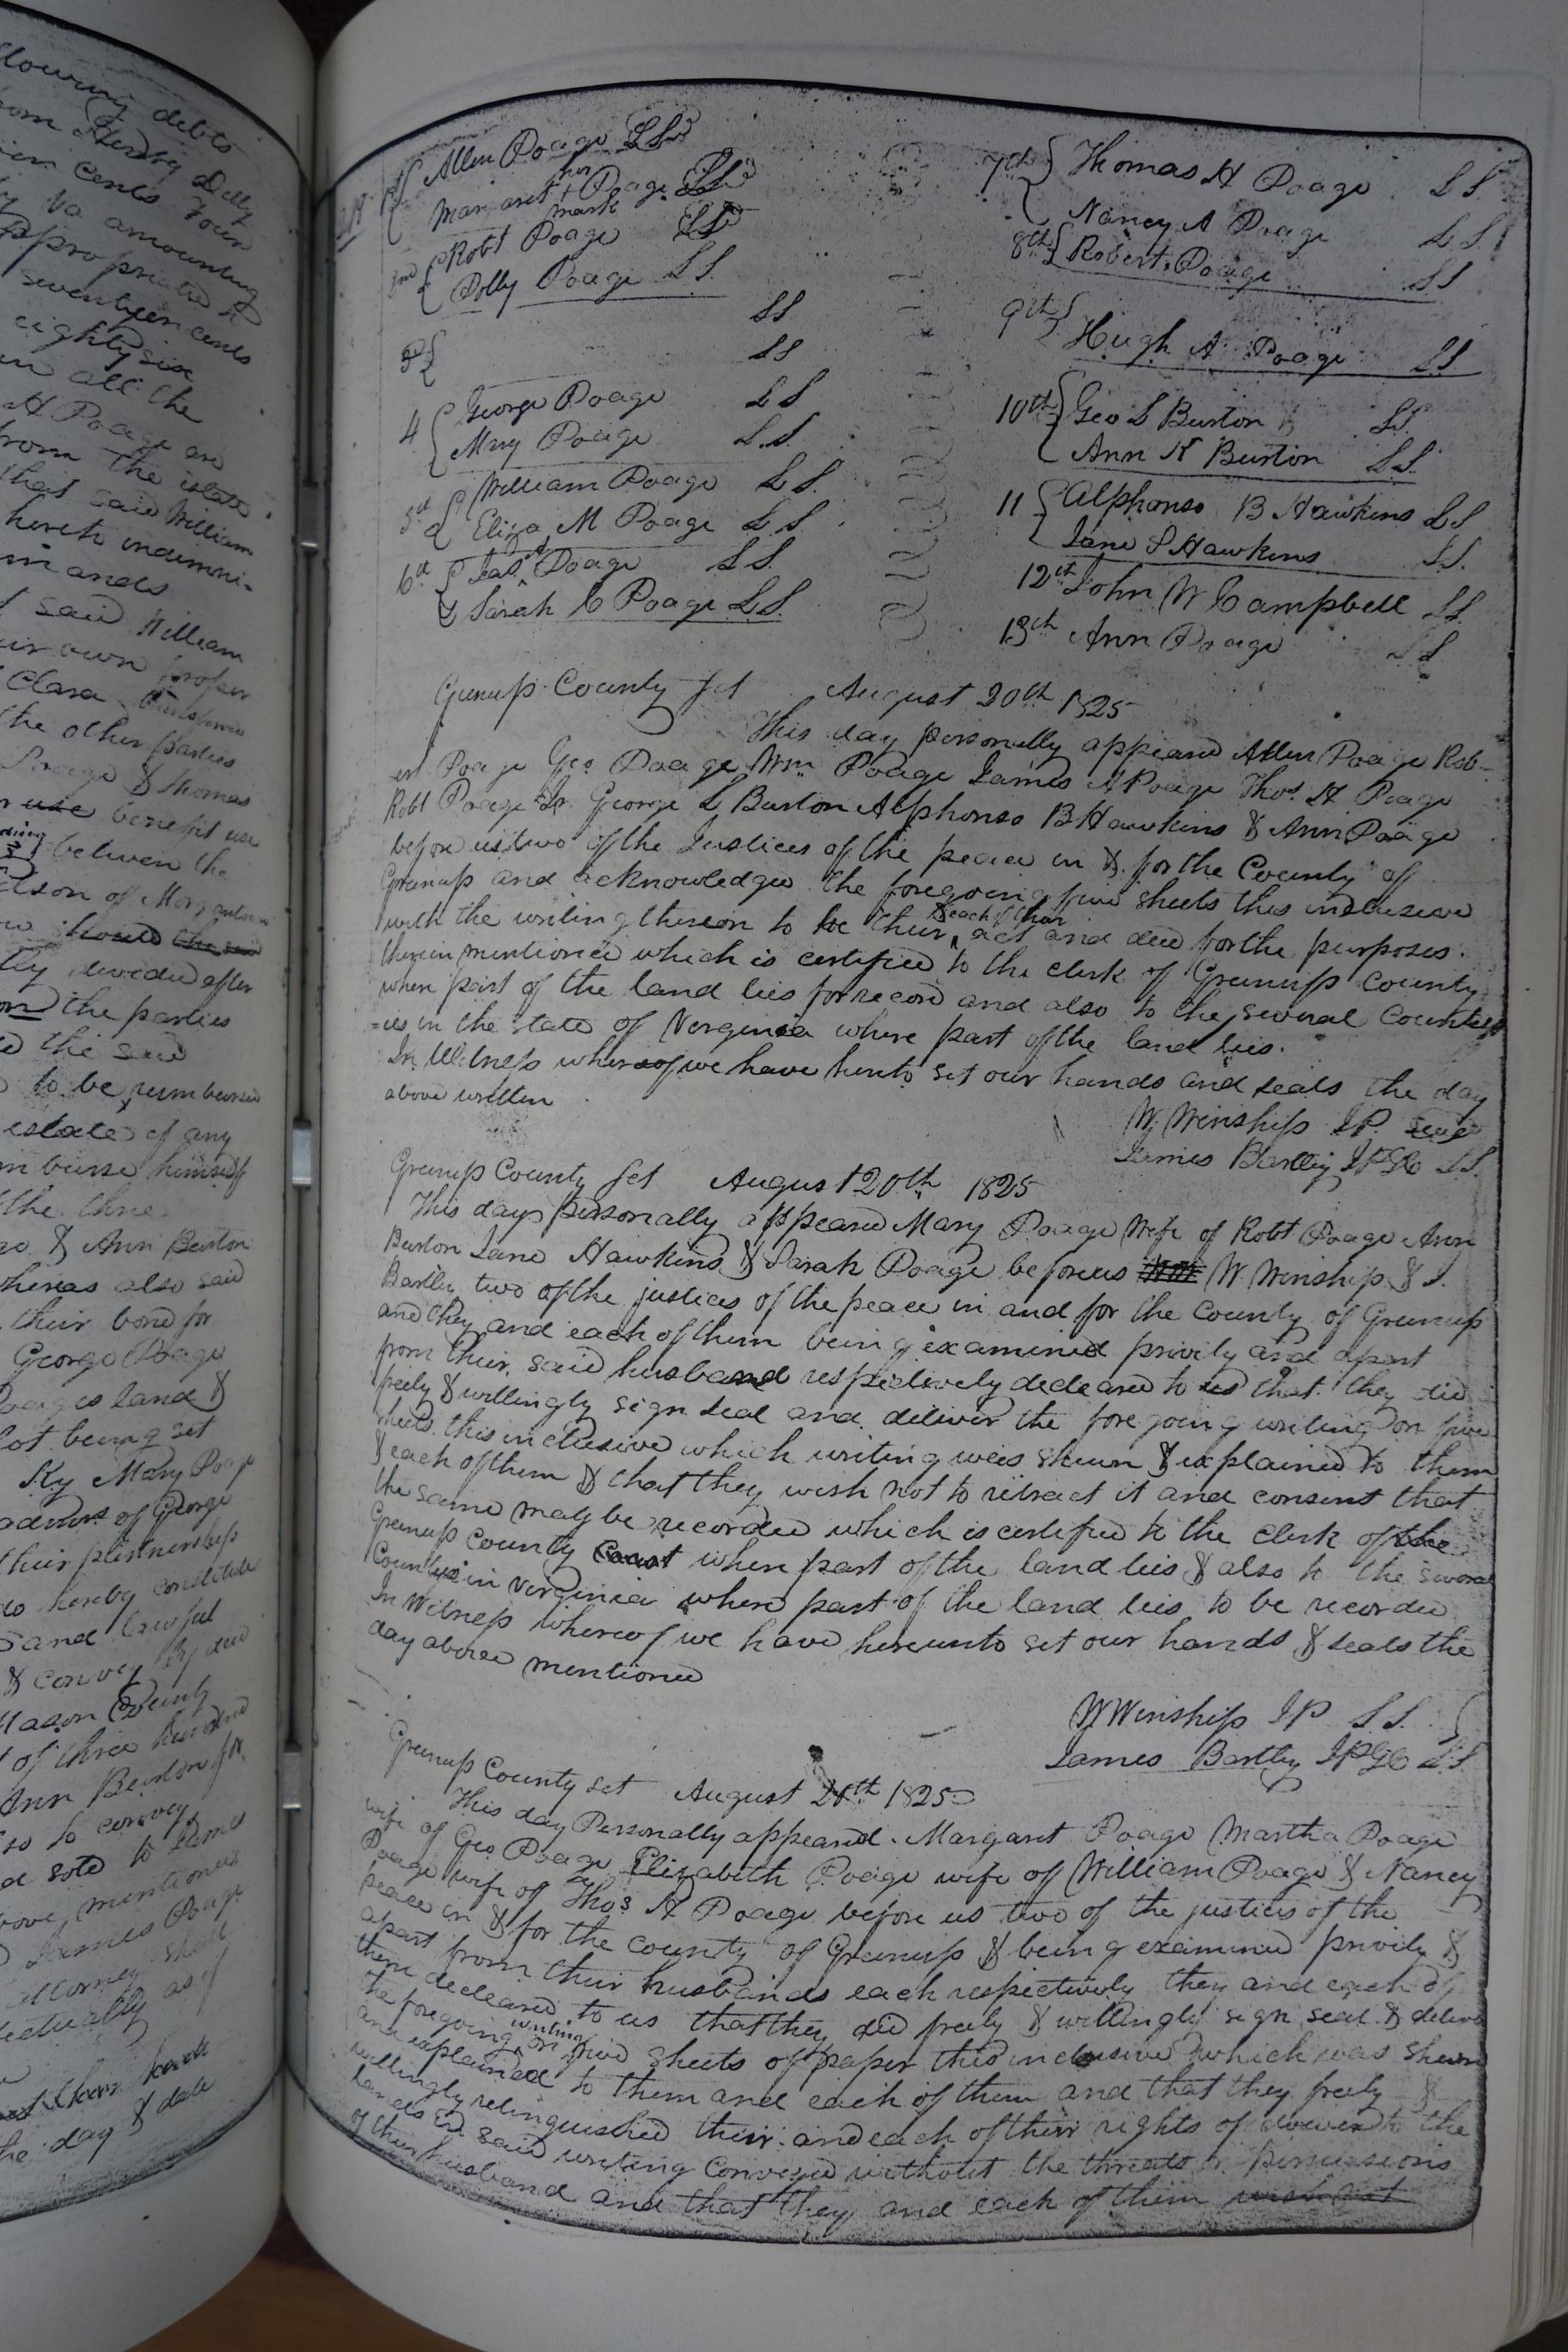 lowing debts
from Henry Delly
cents four
Va amounting
appropriated to
seventeen cents
eighty six
in all the
H Poage are
from the estate
that said William
hereth indemni-
mands
said William
own proper
Clara
the other parties
Poage & Thomas
use benefit use
between the
of Morgantown
should the said
divided after
the parties
the said
to be reimbursed
estate of any
burse himself
the three
& Ann Burton
whereas also said
their bond for
George Poage
Poages land &
lot being set
Ky Mary Poage
admrs of George
their partnership
do hereby constitute
and lawful
& convey by deed
Mason County
of three hundred
Ann Burton for
so to convey
sold to James
above mentioned
James Poage
attorney shall
effectually as if
have hereto
the day & date
1st { Allen Poage LS
her
Margaret + Poage LS
mark
2nd { Robt Poage LS
Polly Poage LS
LS
3d {
LS
4 { George Poage LS
Mary Poage L.S.
5th { William Poage LS.
Eliza M Poage LS.
6th { Jas A Poage LS.
Sarah C Poage LS.
7th { Thomas H Poage LS.
Nancy A Poage LS.
8th { Robert Poage LS
9th {
Hugh A Poage LS
10th { Geo L Burton LS.
Ann K Burton LS.
11 { Alphonso B Hawkins LS
Jane S Hawkins LS.
12th John W Campbell LS
13th Ann Poage LS
Greenup County Sct August 20th 1825
This day personally appeard Allen Poage Rob-
ert Poage Geo Poage Wm Poage James A Poage Thos. H Poage
Robt Poage Jr. George L Burton Alphonso B Hawkins & Ann Poage
before us two of the Justices of the peace in & for the County of
Greenup and acknowledge the foregoing five sheets this inclusive
with the writing thereon to be their & each of their act and deed for the purposes
therein mentioned which is certified to the clerk of Greenup County
where part of the land lies for record and also to the several Counties
=ies in the state of Verginia where part of the land lies.
In Witness whereof we have hento set our hands and seals the day
above written
W Winship JP. Seal
James Bartley JPGC LS.
Greenup County Sct August 20th 1825
This day personally appeared Mary Poage Wife of Robt Poage Ann
Burton Jane Hawkins & Sarah Poage before us W Winship & J.
Bartley two of the justices of the peace in and for the County of Greenup
and they and each of them being examined privily and apart
from their said husband respectively declared to us that they did
freely & willingly sign seal and deliver the foregoing writing on five
sheets this inclusive which writing was shewn & explained to them
& each of them & that they wish not to retract it and consent that
the same may be recorded which is certified to the clerk of the
Greenup County Court where part of the land lies & also to the several
Counties in Virginia where part of the land lies to be recorded
In Witness whereof we have hereunto set our hands & seals the
day above mentioned
W Winship JP LS.
James Bartley JPGC LS
Greenup County Sct August 20th 1825
This day Personally appeard Margaret Poage Martha Poage
wife of Geo Poage Elizabeth Poage wife of William Poage & Nancy
Poage wife of Thos H Poage before us two of the justices of the
peace in & for the county of Greenup & being examined privily &
apart from their husbands each respectively they and each of
them declared to us that they did freely & willingly sign seal & deliver
the foregoing writing on five sheets of paper this inclusive which was shewn
and explained to them and each of them and that they freely &
willingly relinquished their and each of their rights of dower to the
lands in said writing Conveyed without the threats or
of their husband and that they and each of them wish not